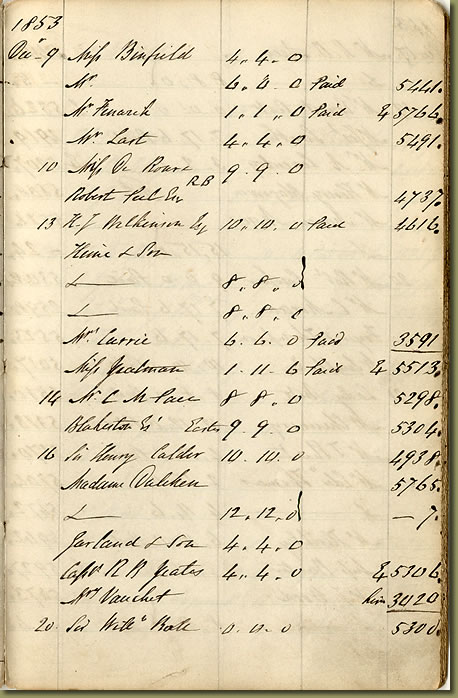 1853
Decr 9 Miss Binfield 4. 4. 0
Mr. 6. 6. 0 Paid 5441.
Mr Fenarik 1. 1. 0 Paid & 5766.
Mr Last 4. 4. 0 5491.
10 Miss De 9. 9. 0
Robert Peel Esq RB 4737.
13 H. J. Wilkinson Esq 10. 10. 0 Paid 4616.
Heine & Son
L— 8. 8. 0
L— 8. 8. 0
Mrs Currie 6. 6. 0 Paid 3591
Miss Yealman 1. 11. 6 Paid & 5513.
14 Mr C M 8 8. 0 5298.
9. 9. 0 5304.
16 Sir Henry Calder 10. 10. 0 4938.
Madame Dulcken 5765.
L— 12. 12. 0 — 7.
Garland & Son 4. 4. 0
Captn R R Yeates 4. 4. 0 & 5306.
Mrs Vauchet him 3020
20 Sir Willm 0. 0. 0 5300.